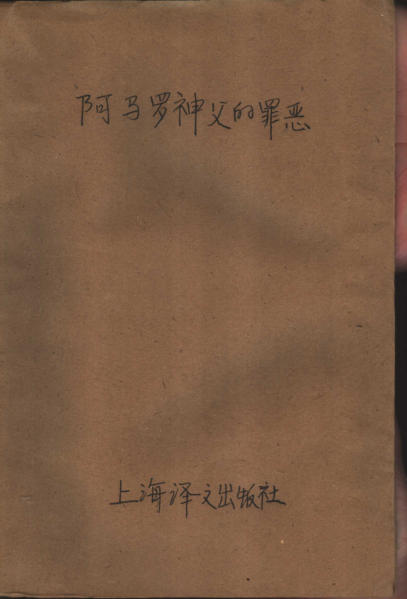 阿马罗神父的罪恶
上海译文出版社